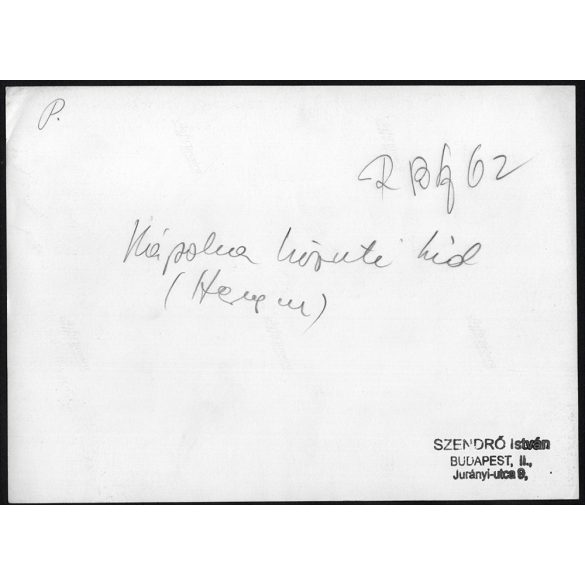 P.
62
Kápolna közuti híd
SZENDRŐ István
BUDAPEST, II.,
Jurányi-utca 9,